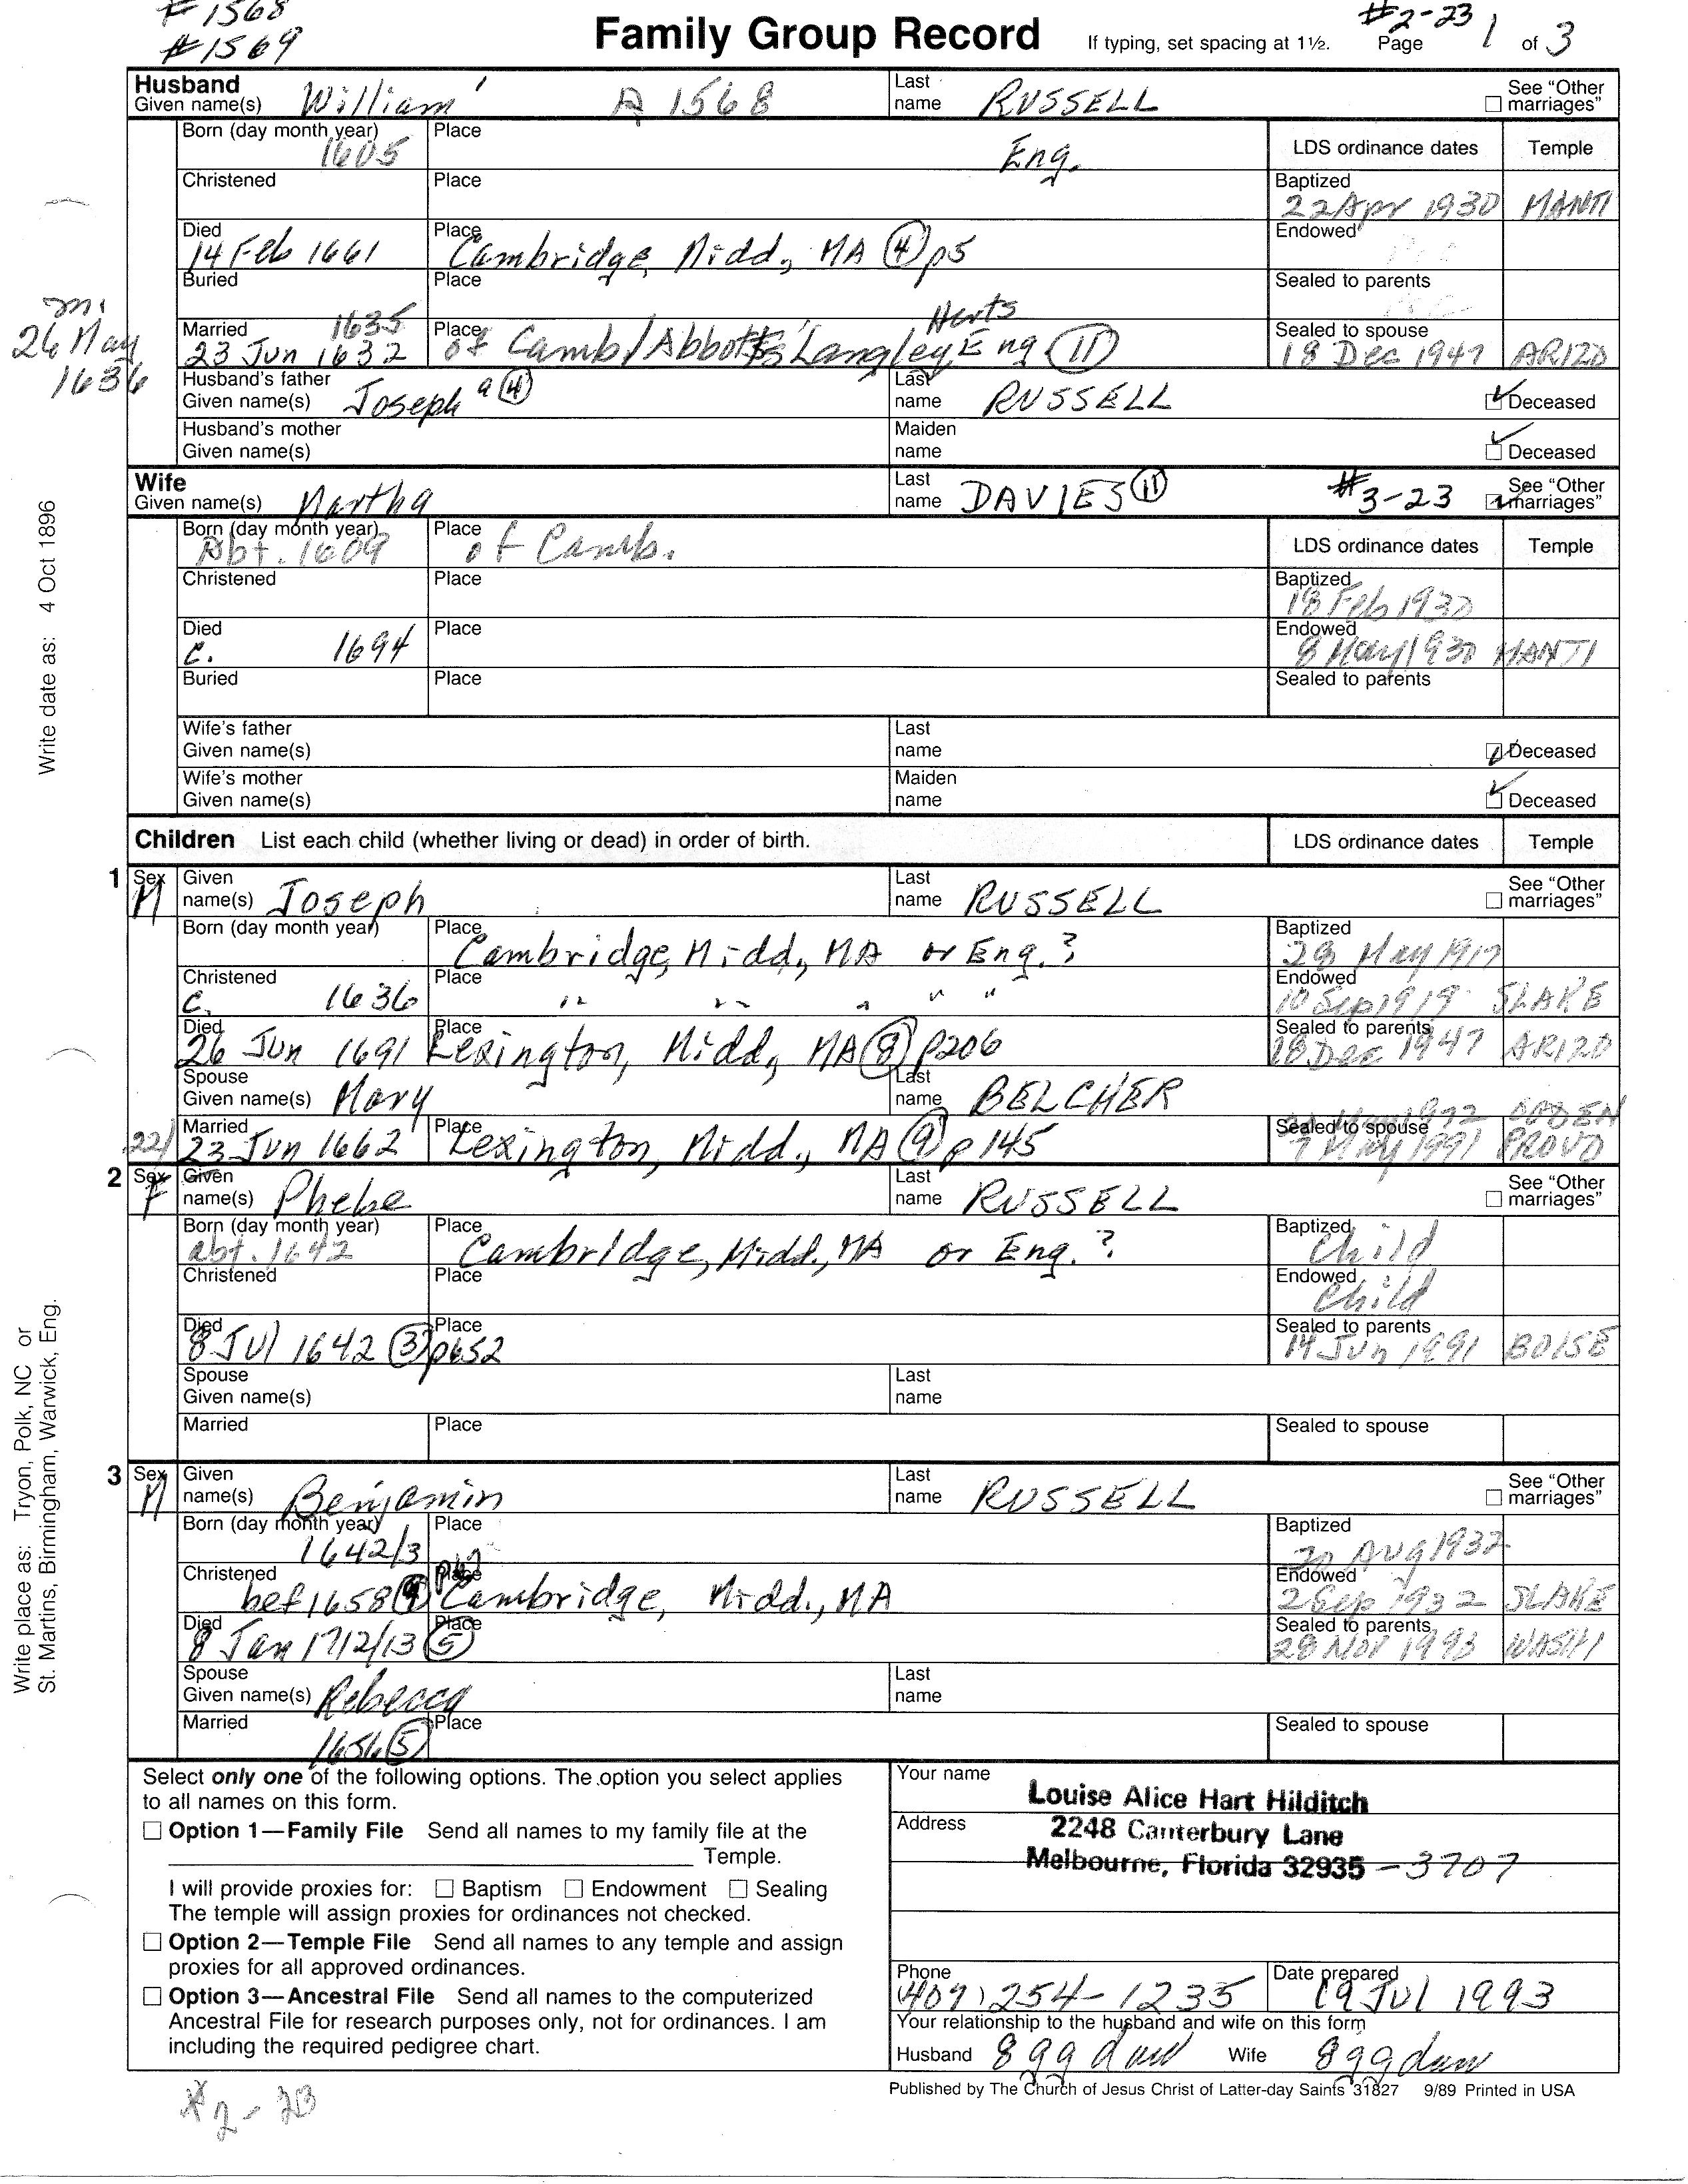 #1568
#1569
Family Group Record
If typing, set spacing at 1½.
#2-23
Page 1 of 3
Husband
Given name(s) William A 1568
Last name RUSSELL
See "Other marriages"
Born (day month year) 1605
Place Eng.
LDS ordinance dates Temple
Christened
Place
Baptized 22 Apr 1930 MANTI
Died 14 Feb 1661
Place Cambridge, Midd., MA (4) p5
Endowed
Buried
Place
Sealed to parents
m. 26 May 1636
Married 1635
23 Jun 1632
Place of Camb/Abbotts Langley Herts Eng (11)
Sealed to spouse 18 Dec 1947 ARIZO
Husband's father
Given name(s) Joseph (4)
Last name RUSSELL
Deceased
Husband's mother
Given name(s)
Maiden name
Deceased
Wife
Given name(s) Martha
Last name DAVIES (11)
#3-23
See "Other marriages"
Born (day month year) Abt. 1609
Place of Camb.
LDS ordinance dates Temple
Christened
Place
Baptized 18 Feb 1930
Died c. 1694
Place
Endowed 8 May 1930 MANTI
Buried
Place
Sealed to parents
Wife's father
Given name(s)
Last name
Deceased
Wife's mother
Given name(s)
Maiden name
Deceased
Children List each child (whether living or dead) in order of birth.
LDS ordinance dates Temple
1 Sex M
Given name(s) Joseph
Last name RUSSELL
See "Other marriages"
Born (day month year)
Place Cambridge, Midd., MA or Eng.?
Baptized 28 May 1917
Christened c. 1636
Place " " " " "
Endowed 10 Sep 1919 SLAKE
Died 26 Jun 1691
Place Lexington, Midd., MA (8) p206
Sealed to parents 18 Dec 1947 ARIZO
Spouse
Given name(s) Mary
Last name BELCHER
22/ Married 23 Jun 1662
Place Lexington, Midd., MA (9) p 145
Sealed to spouse 1972 OGDEN
7 May 1991 PROVO
2 Sex F
Given name(s) Phebe
Last name RUSSELL
See "Other marriages"
Born (day month year) abt. 1642
Place Cambridge, Midd., MA or Eng.?
Baptized Child
Christened
Place
Endowed Child
Died 8 Jul 1642 (3) p652
Place
Sealed to parents 14 Jun 1991 BOISE
Spouse
Given name(s)
Last name
Married
Place
Sealed to spouse
3 Sex M
Given name(s) Benjamin
Last name RUSSELL
See "Other marriages"
Born (day month year) 1642/3
Place
Baptized 20 Aug 1932
Christened bef 1658
Place Cambridge, Midd., MA
Endowed 2 Sep 1932 SLAKE
Died 8 Jan 1712/13 (5)
Place
Sealed to parents 28 Nov 1993 WASHI
Spouse
Given name(s) Rebecca
Last name
Married 1656 (5)
Place
Sealed to spouse
Select only one of the following options. The option you select applies
to all names on this form.
Option 1—Family File Send all names to my family file at the
Temple.
I will provide proxies for: Baptism Endowment Sealing
The temple will assign proxies for ordinances not checked.
Option 2—Temple File Send all names to any temple and assign
proxies for all approved ordinances.
Option 3—Ancestral File Send all names to the computerized
Ancestral File for research purposes only, not for ordinances. I am
including the required pedigree chart.
Your name Louise Alice Hart Hilditch
Address 2248 Canterbury Lane
Melbourne, Florida 32935 -3707
Phone (407) 254-1235
Date prepared 19 Jul 1993
Your relationship to the husband and wife on this form
Husband 8 gg dau Wife 8 gg dau
Published by The Church of Jesus Christ of Latter-day Saints 31827 9/89 Printed in USA
#2-23
Write date as: 4 Oct 1896
Write place as: Tryon, Polk, NC or
St. Martins, Birmingham, Warwick, Eng.